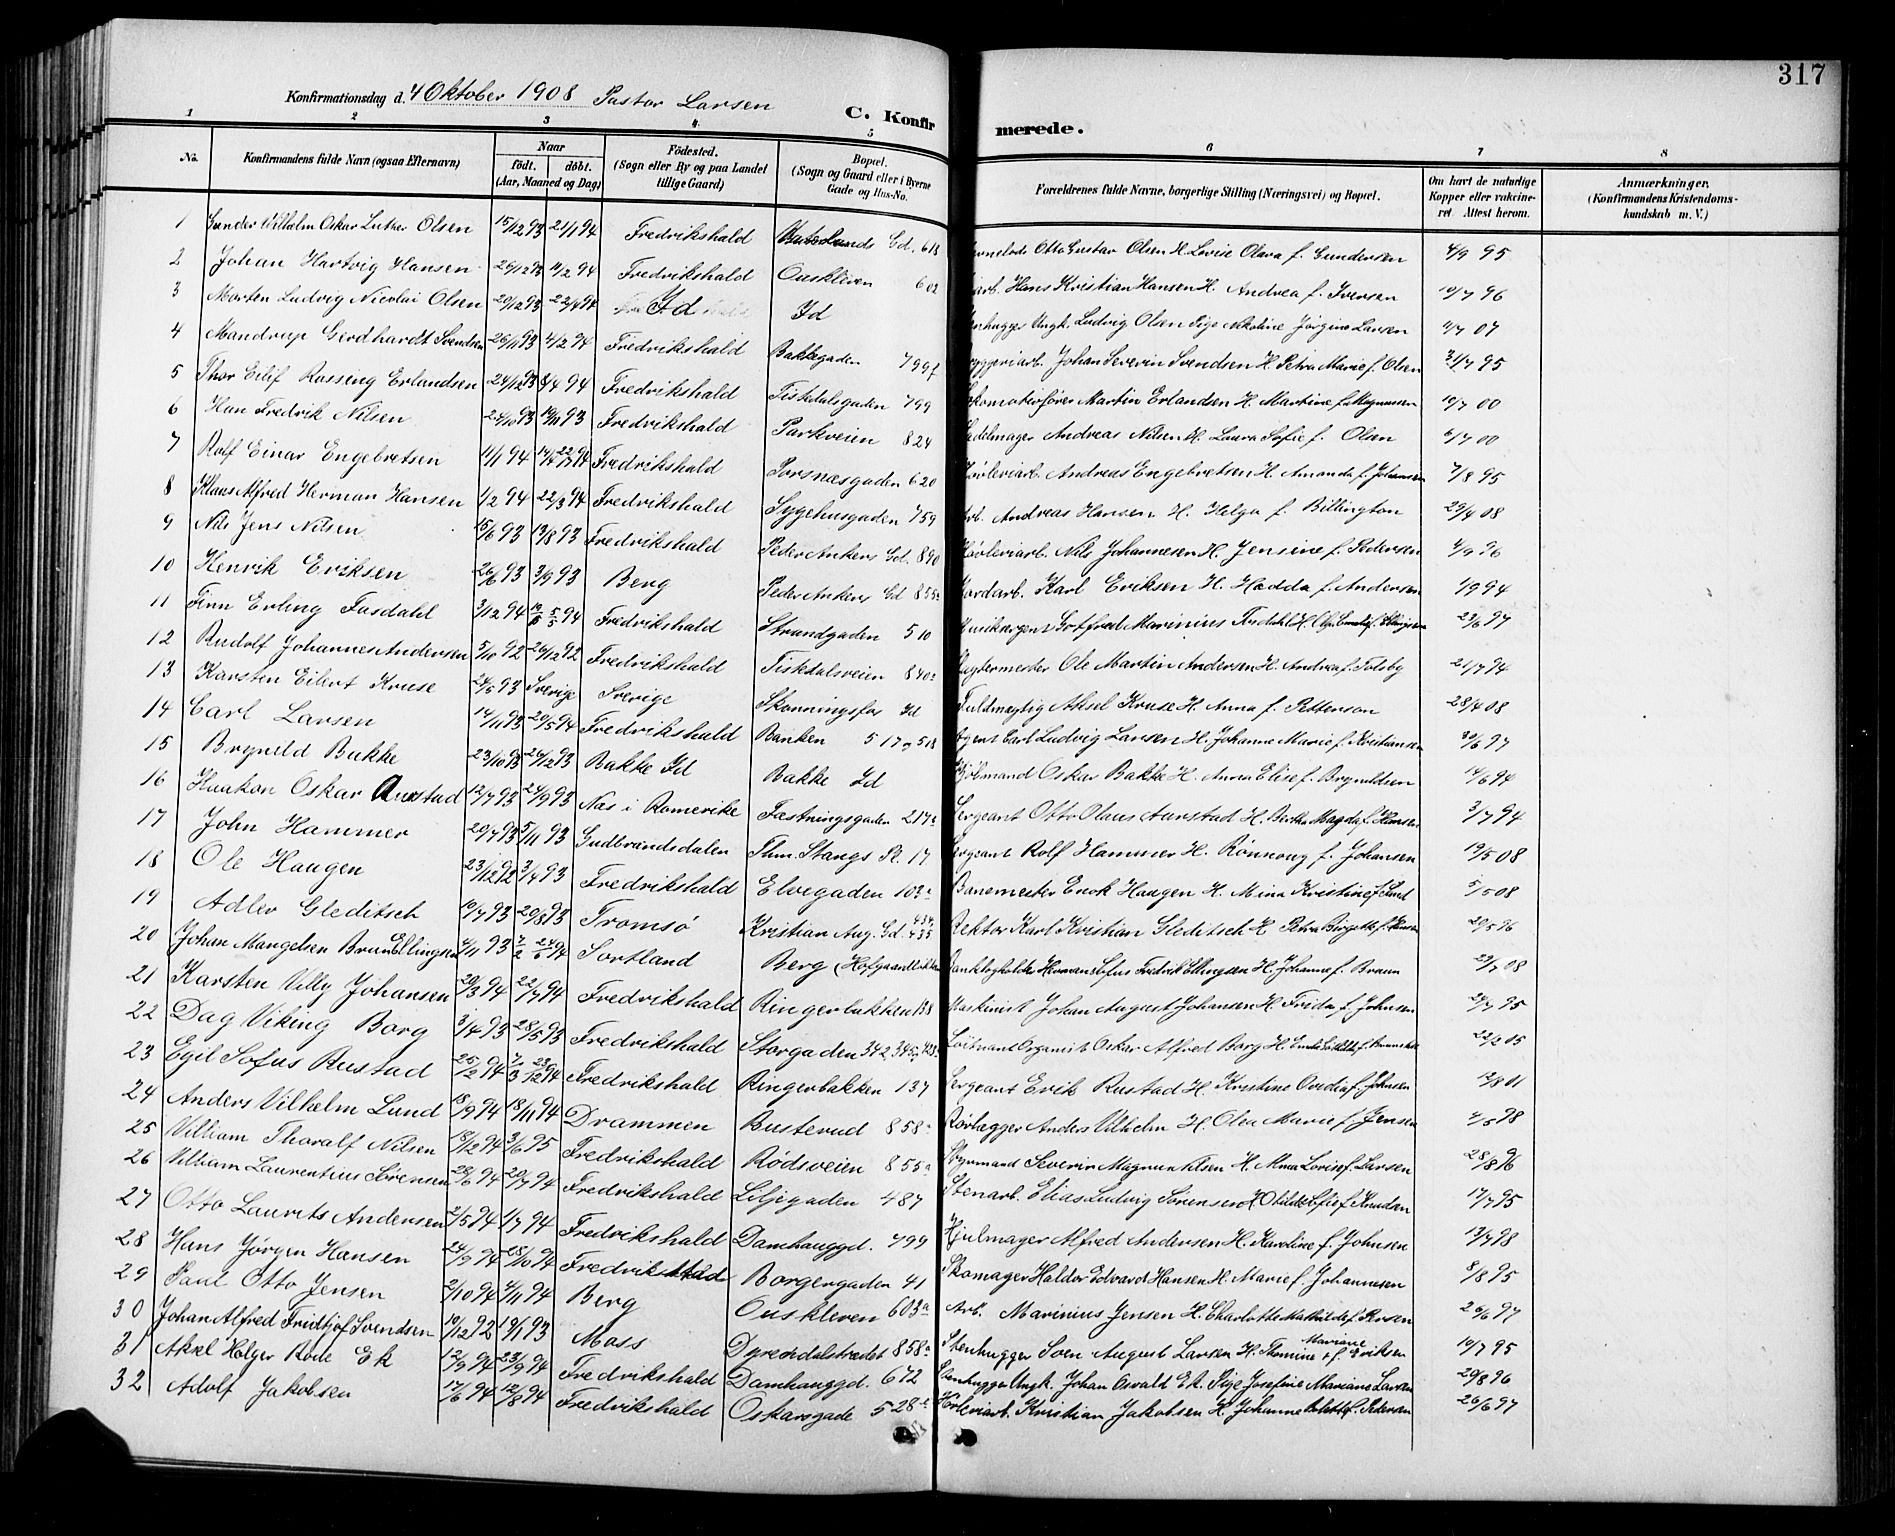 317
Konfirmationsdag d. 4 Oktober 1908 Pastor Larsen
C. Konfirmerede.
1 2 3 4 5 6 7 8
No. Konfirmandens fulde Navn (ogsaa Efternavn) Naar født. døbt. (Aar, Maaned og Dag) Fødested. (Sogn eller By og paa Landet tillige Gaard) Bopæl. (Sogn og Gaard eller i Byerne Gade og Hus-No. Forældrenes fulde Navne, borgerlige Stilling (Næringsvei) og Bopæl. Om havt de naturlige Kopper eller vakcineret. Attest herom. Anmærkninger. (Konfirmandens Kristendomskundskab m. V.)
1 Gunder Vilhelm Oskar Luther Olsen 15/12 93 21/1 94 Fredrikshald Gd. 618 Otto Gustav Olsen H. Lovise Olava f. Gundersen 4/9 95
2 Johan Hartvig Hansen 26/12 93 11/2 94 Fredrikshald Ouskleven 602 Hans Kristian Hansen H. Andrea f. Iversen 10/7 96
3 Morten Ludvig Nicolai Olsen 20/12 93 22/4 94 Id Id Ungk. Ludvig Olsen Pige Nikoline Jørgine Larsen 4/7 07
4 Mandrup Gerdhardt Svendsen 26/11 93 4/2 94 Fredrikshald Bakkegaden 799f Johan Severin Svendsen H. Petra Marie f. Olsen 31/7 95
5 Thor Eilif Rossing Erlandsen 24/12 93 8/4 94 Fredrikshald Tistedalsgaden 799 Lokomotivfører Martin Erlandsen H. Martine f. Magnussen 10/7 00
6 Han Fredrik Nilsen 24/10 93 19/11 93 Fredrikshald Parkveien 824 Sadelmager Andreas Nilsen H. Laura Sofie f. Olsen 6/7 00
7 Rolf Einar Engebretsen 11/1 94 Fredrikshald Porsnæsgaden 620 Høvleriarb. Andreas Engebretsen H. Amanda f. Johansen 7/8 95
8 Klaus Alfred Herman Hansen 1/2 94 22/3 94 Fredrikshald Sygehusgaden 759 Arb. Andreas Hansen H. Helga f. Billington 29/4 08
9 Nils Jens Nilsen 15/6 93 13/8 93 Fredrikshald Peder Ankers Gd. 890 Høvleriarb. Nils Johannesen H. Jensine f. Pedersen 4/9 96
10 Henrik Eriksen 26/6 93 3/9 93 Berg Peder Ankers Gd 855a Jordarb. Karl Eriksen H. Hedda f. Andersen 1/9 94
11 Finn Erling Fosdahl 3/12 94 Fredrikshald Strandgaden 510 Gotfred Marinius 23/6 97
12 Rudolf Johannes Andersen 5/10 92 26/12 92 Fredrikshald Tistedalsveien 840a Ole Martin Andersen H. Andrea f. Toleby 21/7 94
13 Karsten Eilert Kruse 24/5 93 Sverige Sverige Skonningsfos Id Fuldmægtig Aksel Kruse H. Anna f. Petterson 28/4 08
14 Carl Larsen 14/11 93 20/5 94 Fredrikshald Banken 517 og 518 Agent Carl Ludvig Larsen H. Johanne Marie f. Kristiansen 30/6 97
15 Brynild Bakke 23/10 93 26/12 93 Bakke Id Bakke Id Oskar Bakke H. Anna Elise f. Brynildsen 14/6 94
16 Haakon Oskar Aurstad 12/7 93 24/9 93 Nas i Romerike Fæstningsgaden 217a Sergeant Otto Olaus Aurstad H. Bertha Magda f. Hansen 3/7 94
17 John Hammer 20/7 93 5/11 93 Gudbrandsdalen Thm. Stangs Pl. 17 Sergeant Rolf Hammer H. Rønnoug f. Johansen 19/5 08
18 Ole Haugen 23/12 92 3/4 93 Fredrikshald Elvegaden 102a Banemester Enok Haugen H. Mina Kristine f. 5/5 08
19 Adler Gleditsch 19/7 93 20/8 93 Tromsø Kristian Aug. Gd. 434 435 Rektor Karl Kristian Gleditsch H. Petra Birgette f. Hansen 29/5 96
20 Johan Mangelsen Brun Ellingsen 4/11 93 Sortland Berg Bankbogholder Herman Sofus Fredrik Ellingsen H. Johanne f. Bruun 23/7 08
21 Karsten Villy Johansen 20/3 94 22/7 94 Fredrikshald Ringerbakken 138 Maskinist Johan August Johansen H. Frida f. Johnsen 24/7 95
22 Dag Viking Borg 3/4 93 28/5 93 Fredrikshald Storgaden 342 345 Løitnant Organist Oskar Alfred Borg H. 22/2 05
23 Egil Sofus Rustad 25/2 94 Fredrikshald Ringerbakken 137 Sergeant Erik Rustad H. Kristine Ovidia f. Johnsen 12/8 01
24 Anders Vilhelm Lund 18/9 94 18/11 94 Drammen Busterud 858a Rørlægger Anders Vilhelm H. Olea Marie f. Jensen 4/5 98
25 Villiam Thoralf Nilsen 18/12 94 3/6 95 Fredrikshald Rødsveien 855a Styrmand Severin Magnus Nilsen H. Alma Lovise f. Larsen 28/8 96
26 Villiam Laurentius Sørensen 28/6 94 20/7 94 Fredrikshald Liljegaden 487 Stenarb. Elias Ludvig Sørensen H. Otilde Sofie f. Knudsen 17/7 95
27 Otto Laurits Andersen 2/5 94 1/7 94 Fredrikshald Damhauggd. 799 Hjulmager Alfred Andersen H. Karoline f. Johnsen 13/7 98
28 Hans Jørgen Hansen 24/9 94 28/10 94 Fredrikstad Borgergaden 41 Skomager Haldor Edvard Hansen H. Marie f. Johannesen 8/8 95
29 Paul Otto Jensen 2/10 94 4/11 94 Berg Ouskleven 603a Arb. Marinius Jensen H. Charlotte Mathilde f. Rosen 26/6 97
30 Johan Alfred Fridtjof Svendsen 10/12 92 19/1 93 Moss Dyrendalstrædet 858a Stenhugger Sven August Larsen H. Thomine Mariane f. Eriksen 10/7 95
31 Aksel Holger Rode Ek 12/9 94 23/9 94 Fredrikshald Damhauggd. 672 Stenhugger Ungk. Johan Osvald Ek. Pige Josefine Mariane Larsen 20/8 96
32 Adolf Jakobsen 17/6 94 12/8 94 Fredrikshald Oskarsgade 528 Høvleriarb. Kristian Jakobsen H. Johanne Bolette f. Pedersen 26/6 97